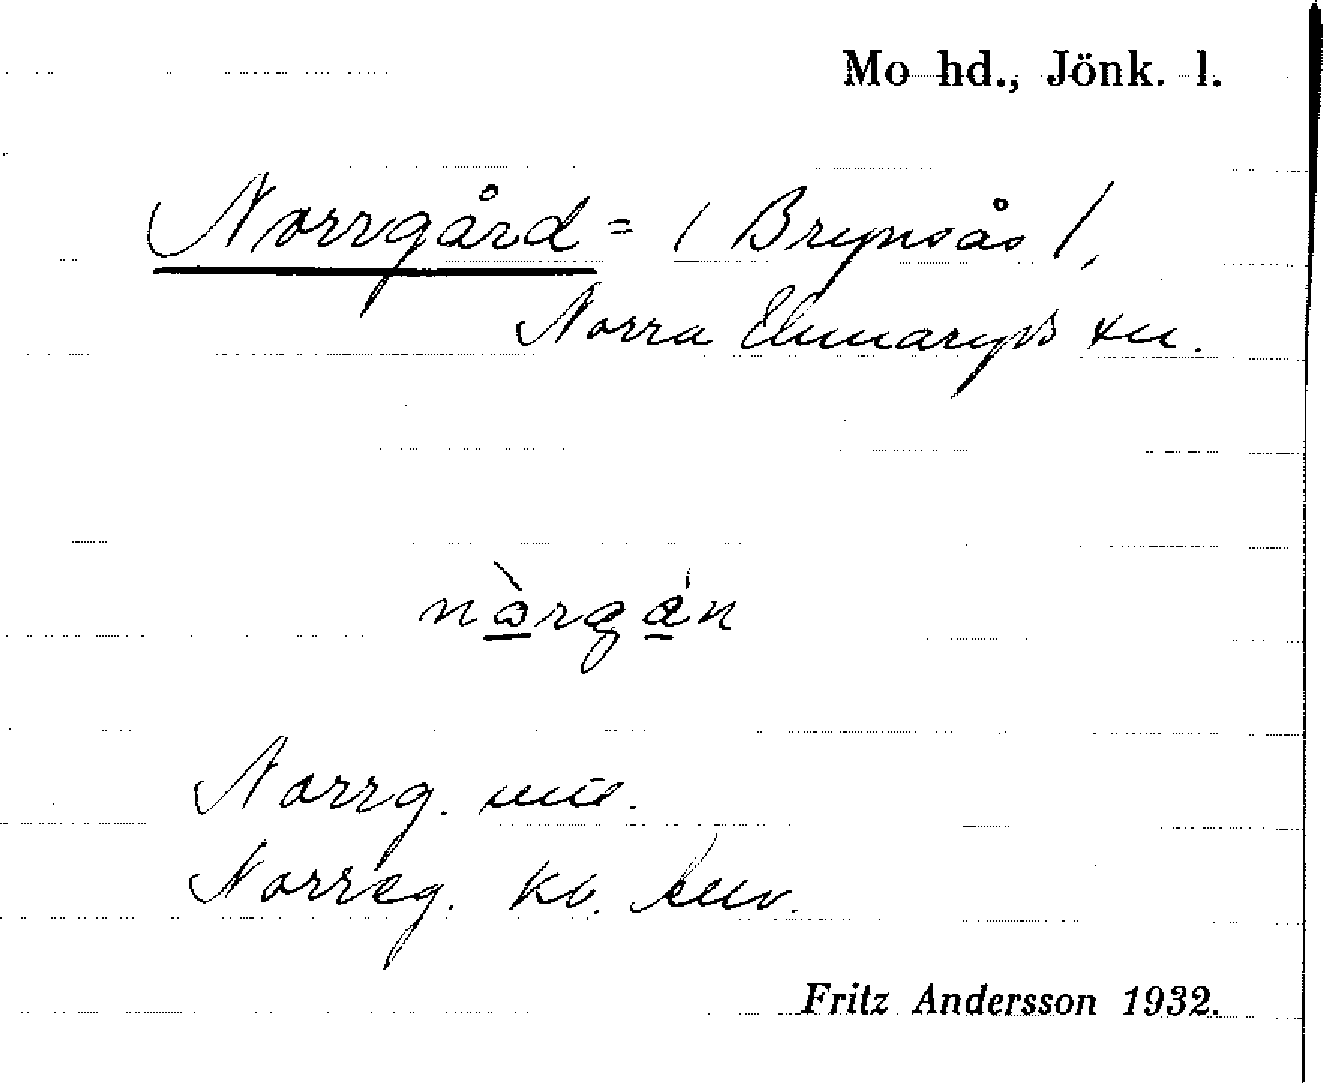 Mo hd., Jönk. l.
Norrgård = ( Brynsås ),
Norra Unnaryds sn.
nòrgán
Norrg.
Norreg. kb.
Fritz Andersson 1932.